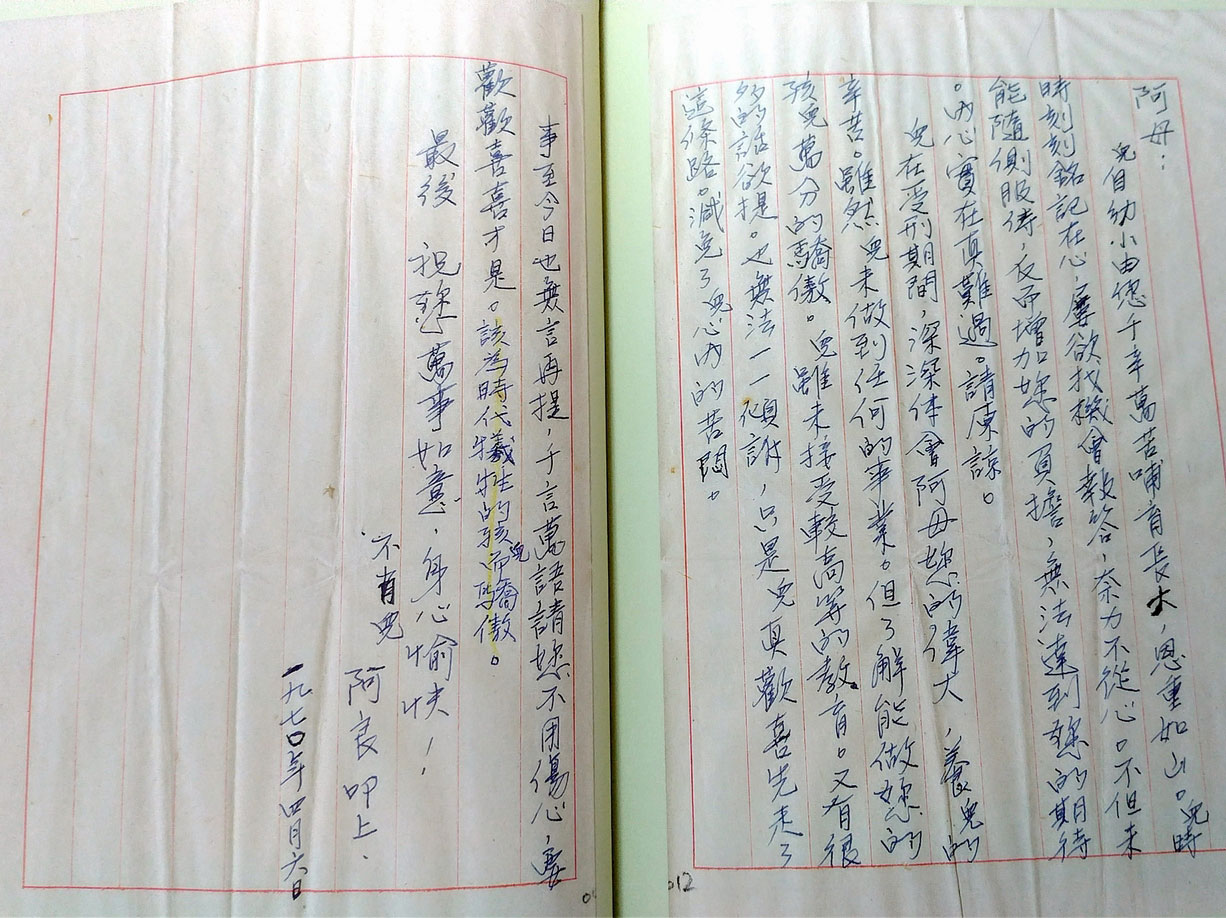 阿母：
兒自幼小由您千辛萬苦哺育長大，恩重如山。兒時
時刻刻銘記在心，屢欲找機會報答，奈力不從心。不但未
能隨側服侍，反而增加妳的負擔，無法達到妳的期待
。內心實在真難過。請原諒。
兒在受刑期間，深深体會阿母您的偉大，養兒的
辛苦。雖然兒未做到任何的事業。但了解能做妳的
孩兒萬分的驕傲。兒雖未接受較高等的教育。又有很
多的話欲提。也無法一一傾訴，只是兒真歡喜先走了
這條路。減免了兒心內的苦悶。
012
事至今日也無言再提，千言萬語請妳不用傷心，要
歡歡喜喜才是。該為時代犧牲的孩兒而驕傲。
最後 祝您萬事如意，身心愉快！
不肖兒 阿良叩上、
一九七〇年四月六日